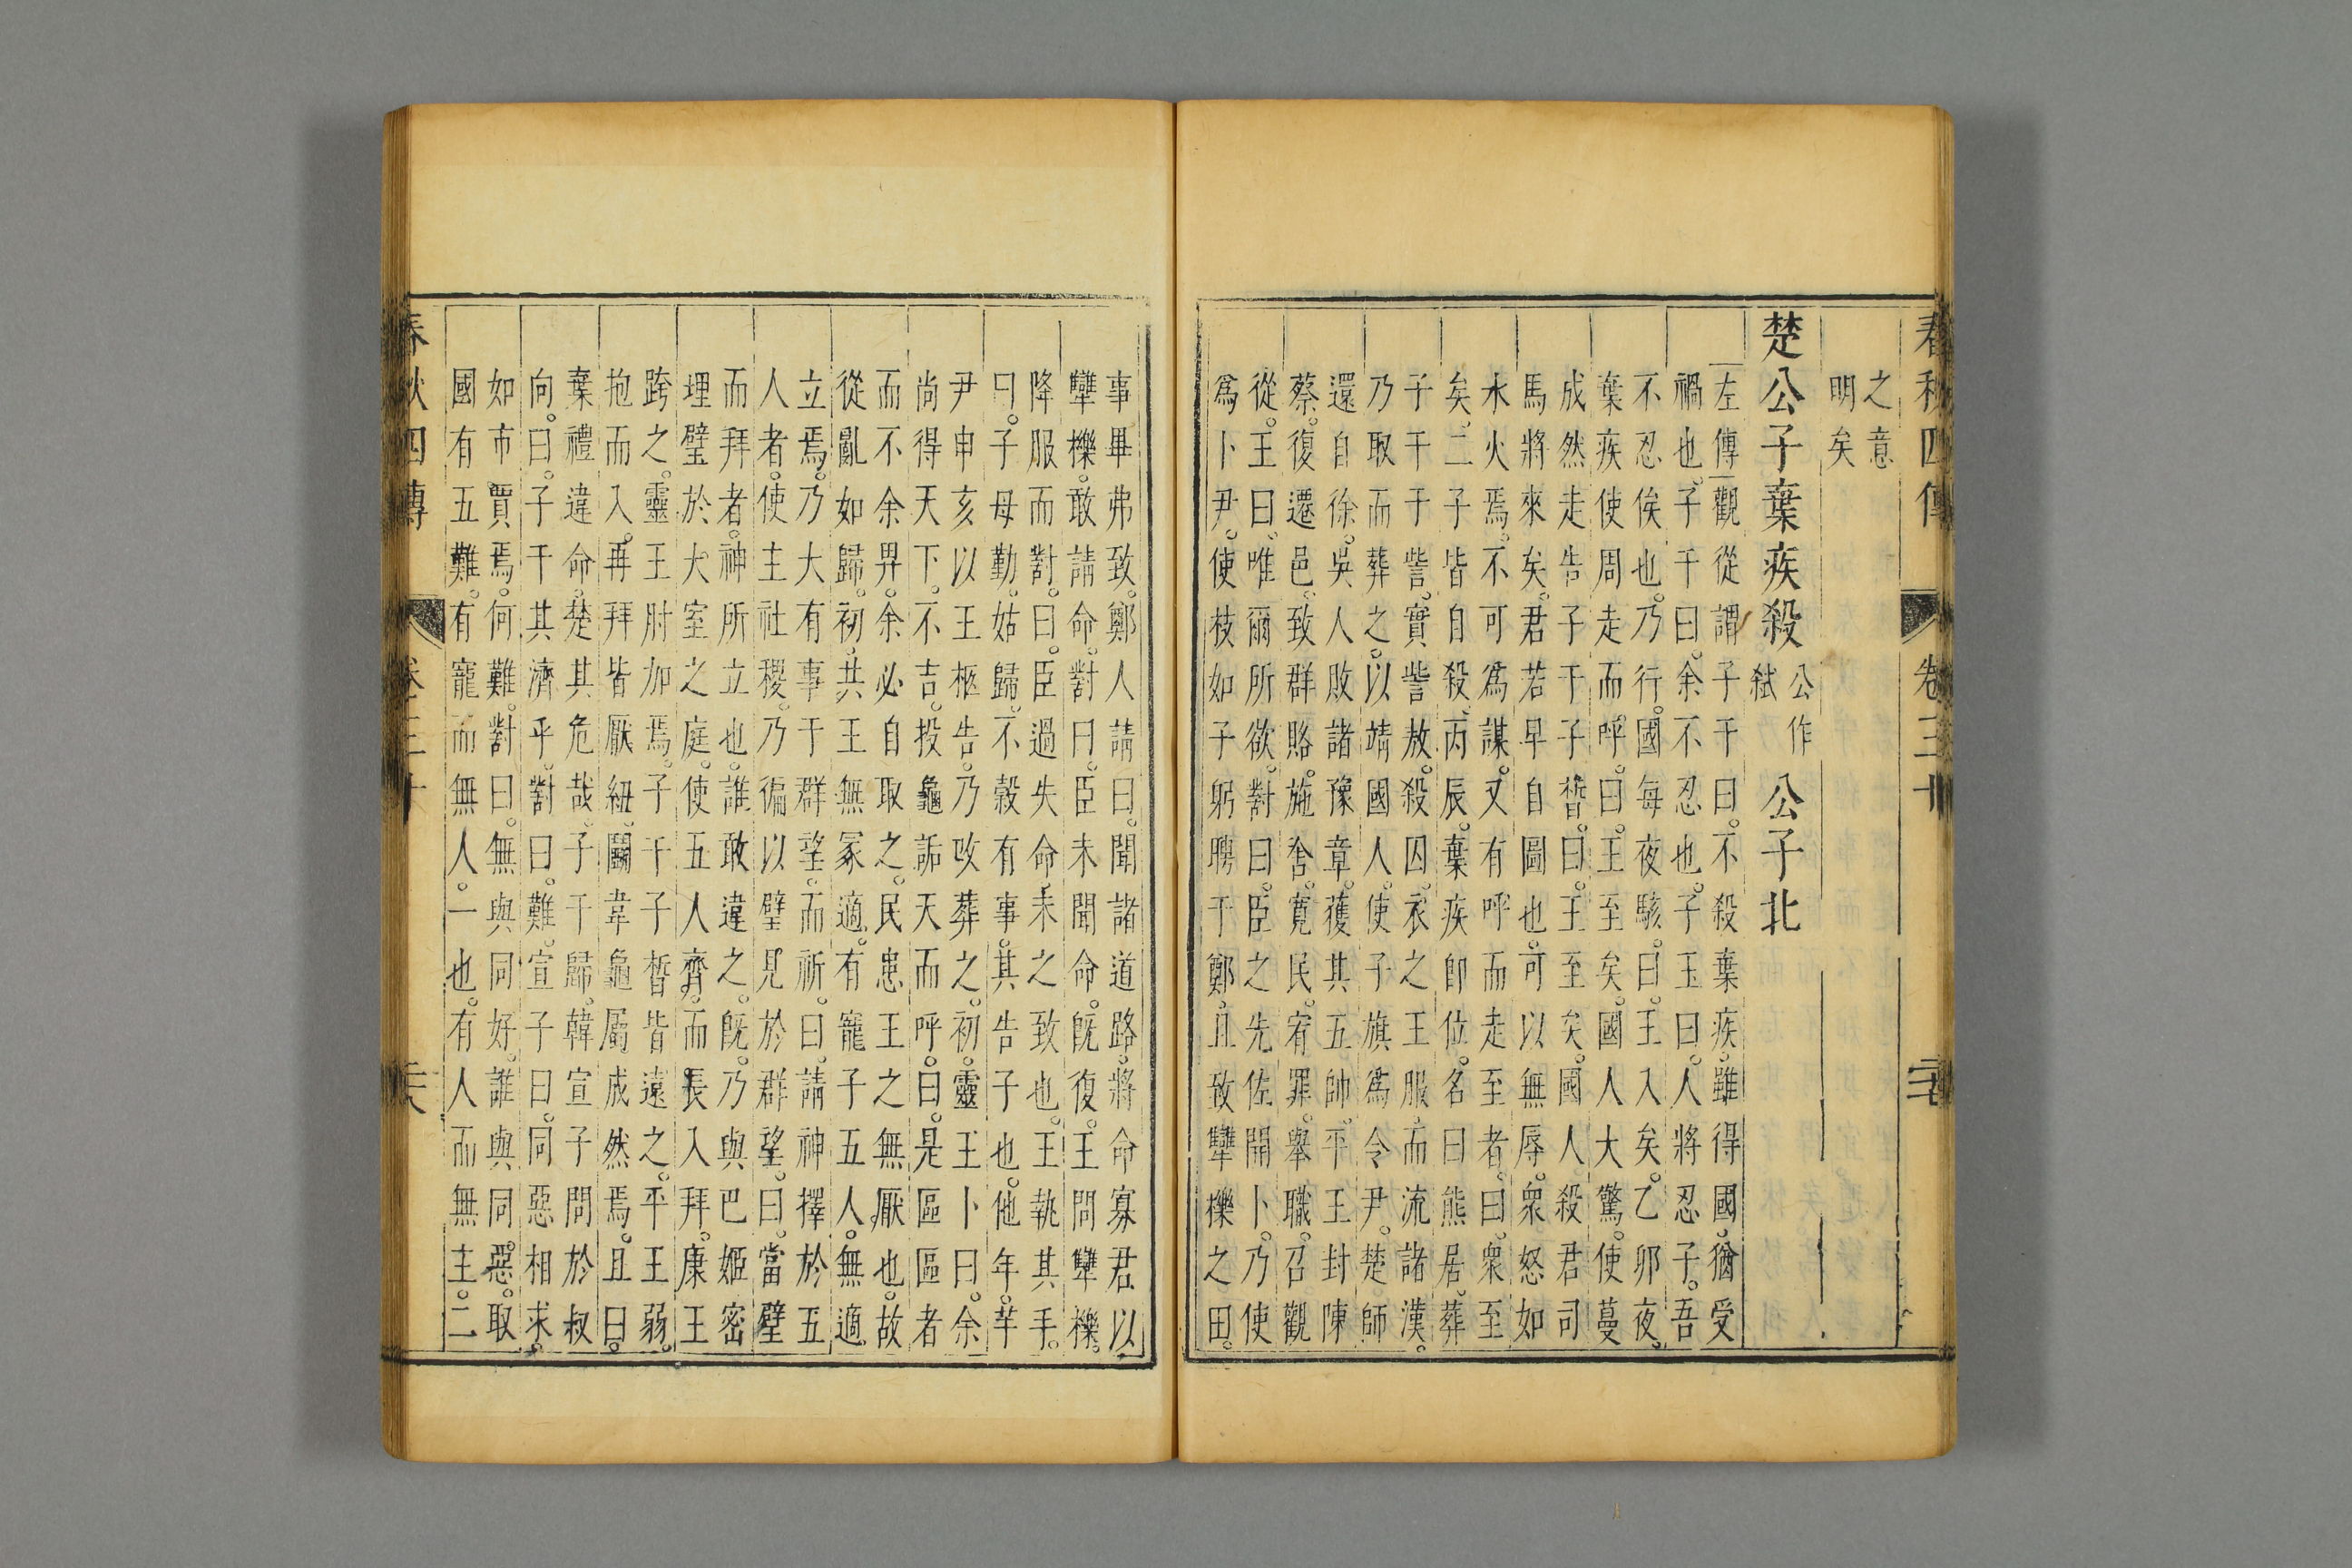 春秋四傳 卷三十
之意
明矣
楚公子棄疾殺公作弑公子北
左傳觀從謂子干曰不殺棄疾雖得國猶受
禍也子干曰余不忍也子玉曰人將忍子吾
不忍俟也乃行國每夜駭曰王入矣乙卯夜
棄疾使周走而呼曰王至矣國人大驚使蔓
成然走告子干子晳曰王至矣國人殺君司
馬將來矣君若早自圖也可以無辱衆怒如
水火焉不可爲謀又有呼而走至者曰衆至
矣二子皆自殺丙辰棄疾卽位名曰熊居葬
子干于訾實訾敖殺囚衣之王服而流諸漢
乃取而葬之以靖國人使子旗爲令尹楚師
還自徐吳人敗諸豫章獲其五帥平王封陳
蔡復遷邑致群賂施舍寬民宥罪舉職召觀
從王曰唯爾所欲對曰臣之先佐開卜乃使
爲卜尹使枝如子躬聘于鄭且致犫櫟之田
事畢弗致鄭人請曰聞諸道路將命寡君以
犫櫟敢請命對曰臣未聞命旣復王問犫櫟
降服而對曰臣過失命未之致也王執其手
曰子毋勤姑歸不榖有事其告子也他年芊
尹申亥以王柩告乃改葬之初靈王卜曰余
尚得天下不吉投龜詬天而呼曰是區區者
而不余畀余必自取之民患王之無厭也故
從亂如歸初共王無冢適有寵子五人無適
立焉乃大有事于群望而祈曰請神擇於五
人者使主社稷乃徧以璧見於群望曰當璧
而拜者神所立也誰敢違之旣乃與巴姬密
埋璧於大室之庭使五人齊而長入拜康王
跨之靈王肘加焉子干子晳皆遠之平王弱
抱而入再拜皆厭紐鬭韋龜屬成然焉且曰
棄禮違命楚其危哉子干歸韓宣子問於叔
向曰子干其濟乎對曰難宣子曰同惡相求
如市賈焉何難對曰無與同好誰與同惡取
國有五難有寵而無人一也有人而無主二
春秋四傳 卷三十